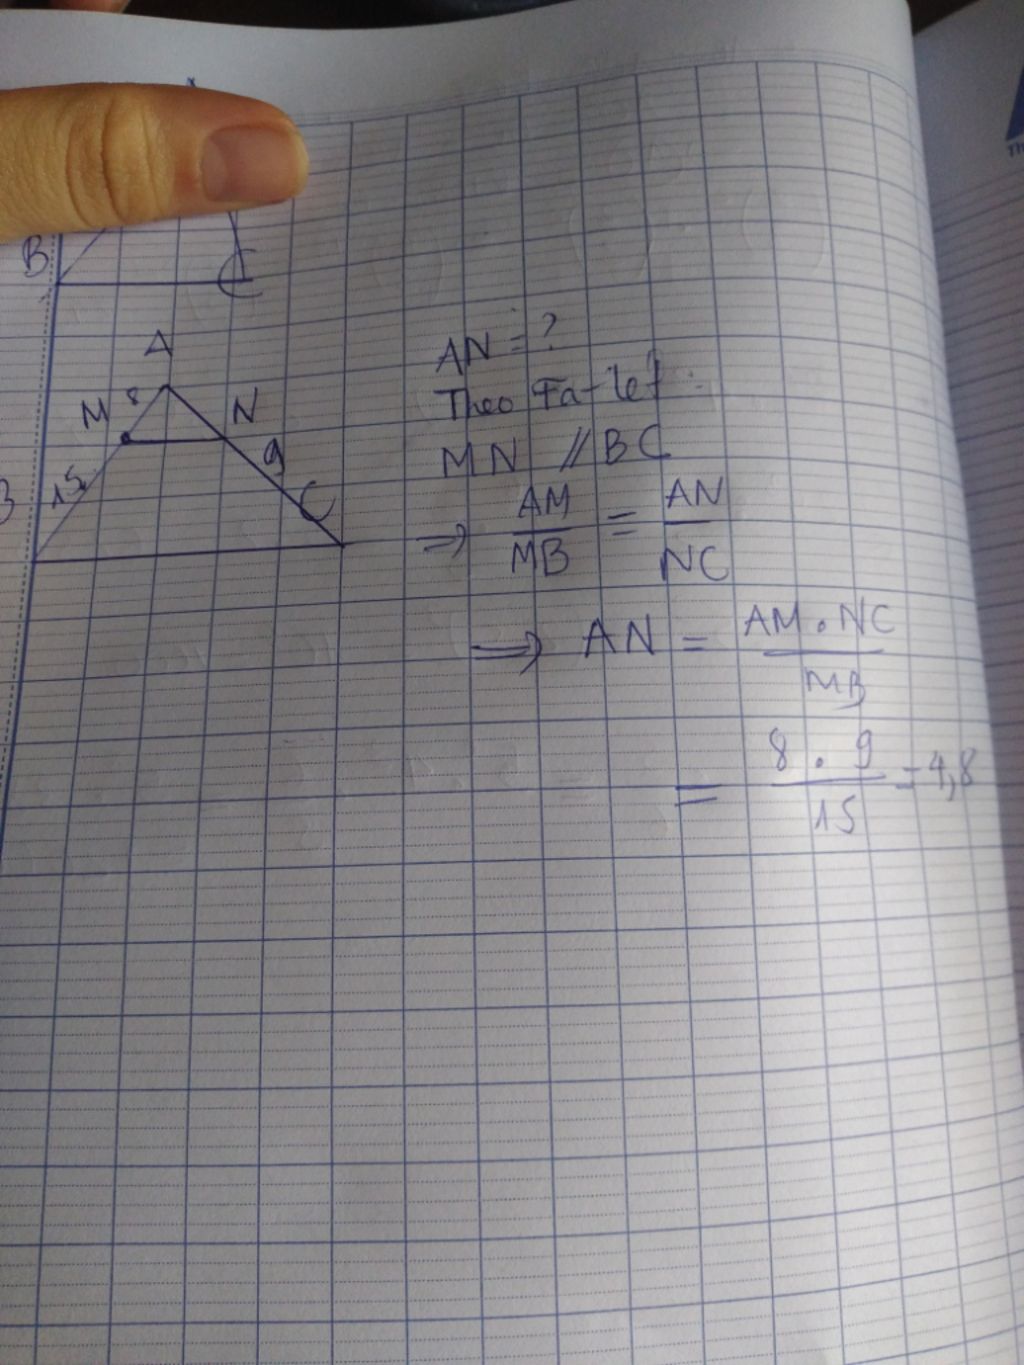 B
C
A
M 8 N
15 9
B C
AN = ?
Theo Ta-let :
MN // BC
=> AM/MB = AN/NC
=> AN = AM . NC / MB
= 8 . 9 / 15 = 4,8
Th